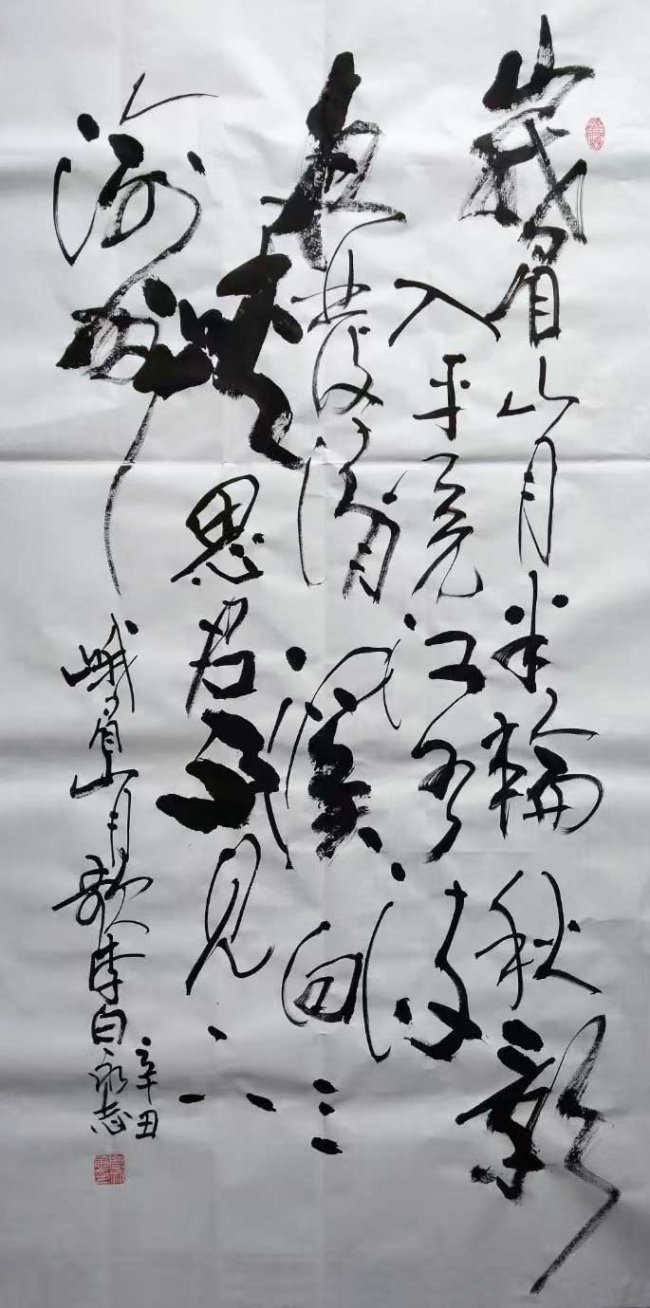 峩眉山月半輪秋影
入平羌江水流
夜發清溪向三
峽思君不見下
渝州
峨眉山月歌李白永志
辛丑